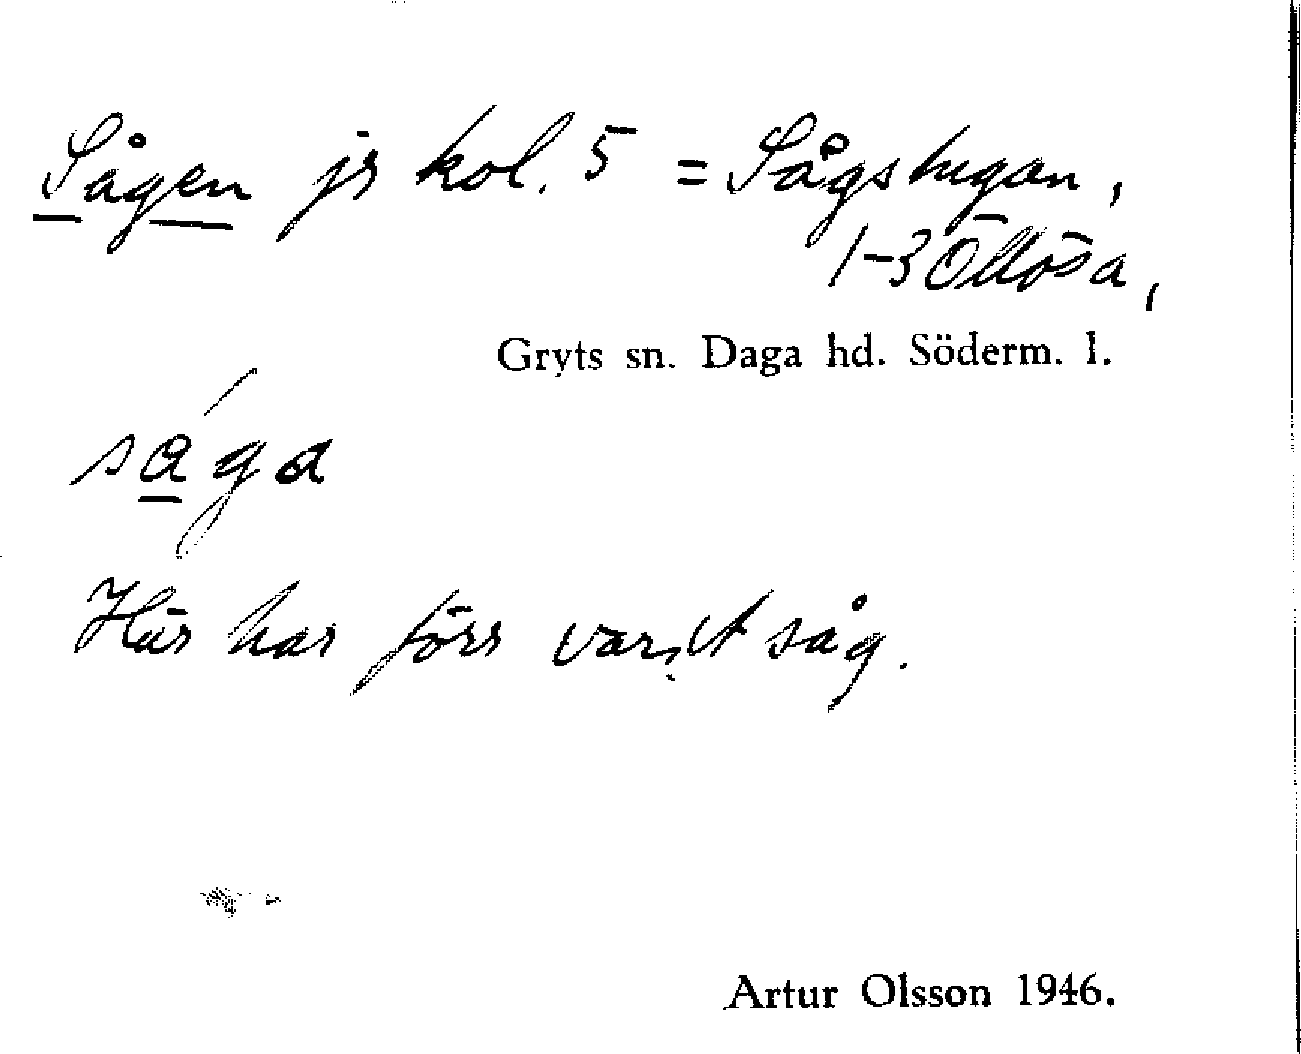 Sågen js kol. 5 = Sågstugan,
1-3 Öllösa,
Gryts sn. Daga hd. Söderm. l.
såga
Här har förr varit såg.
Artur Olsson 1946.